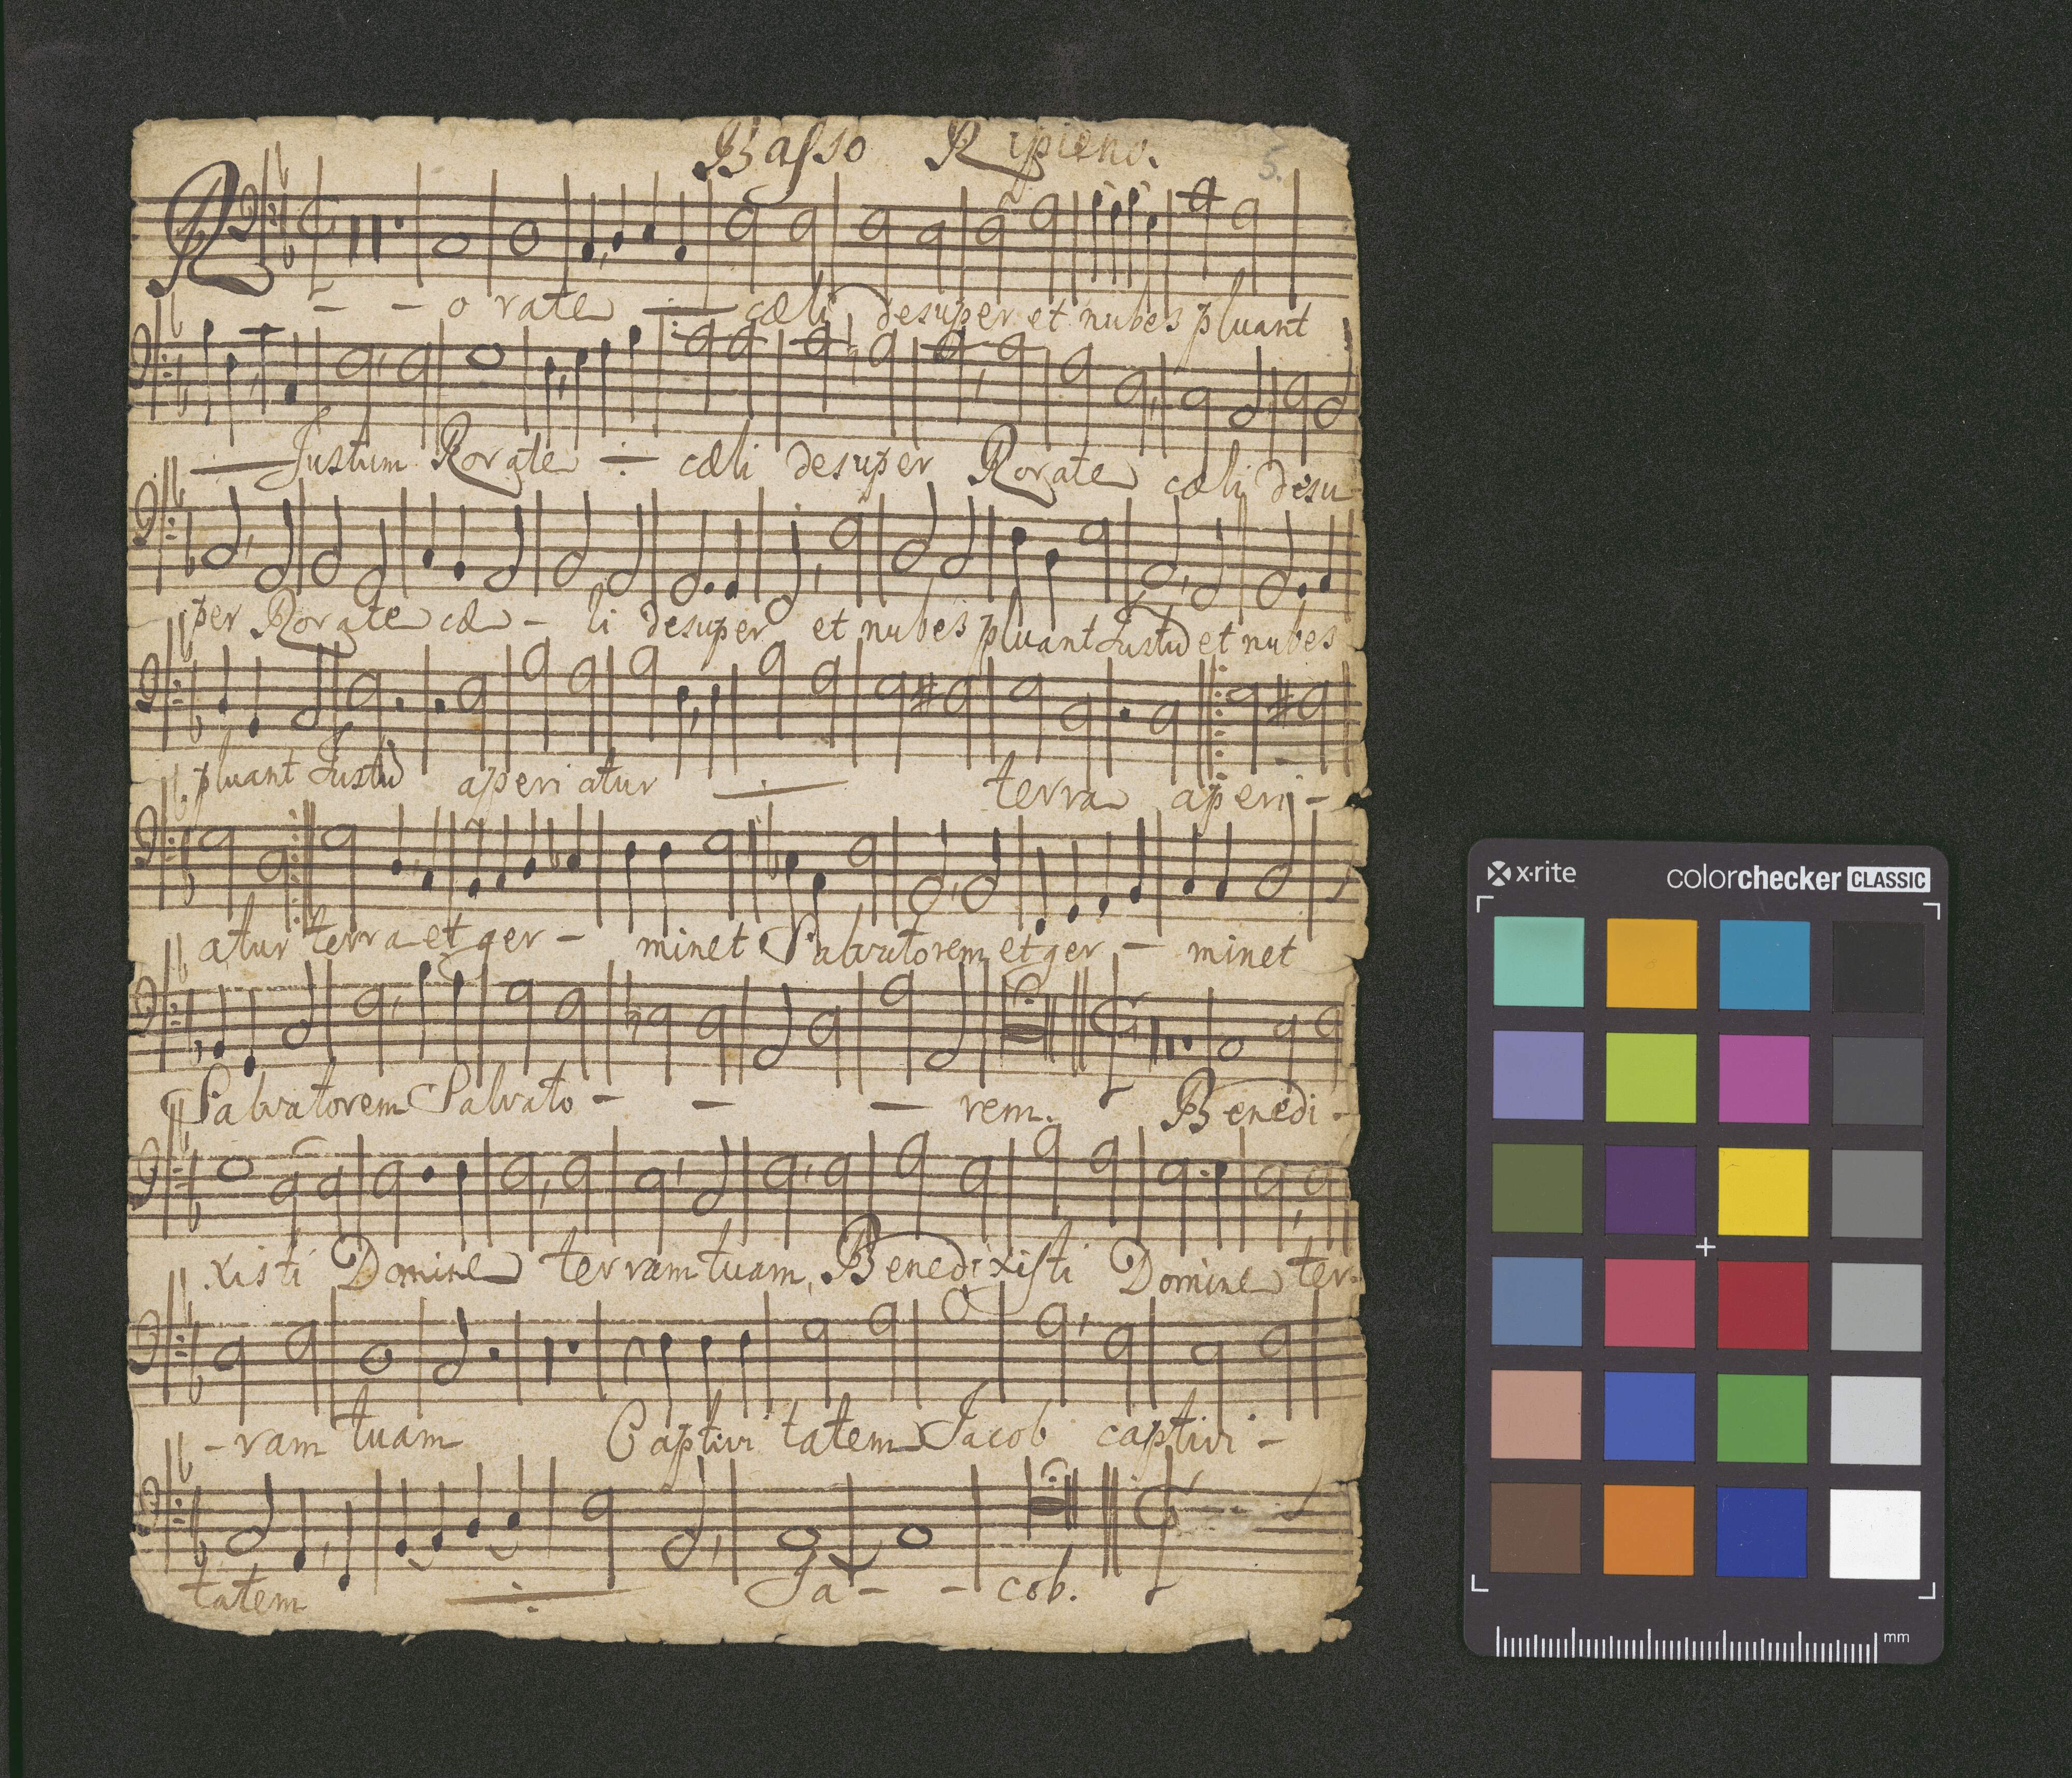 Basso Ripieno. 5.
R - - o rate cæli desuper et nubes pluant
Justum Rorate cæli desuper Rorate cæli desu
per Rorate cæ - li desuper et nubes pluant Justū et nubes
pluant Justū aperi atur terra aperi -
atur terra et ger - minet Salvatorem et ger - minet
Salvatorem Salvato - - - rem. Benedi -
xisti Domine terram tuam, Benedixisti Domine ter -
- ram tuam Captivi tatem Jacob captivi -
tatem Ja - - cob.
x·rite colorchecker CLASSIC
mm